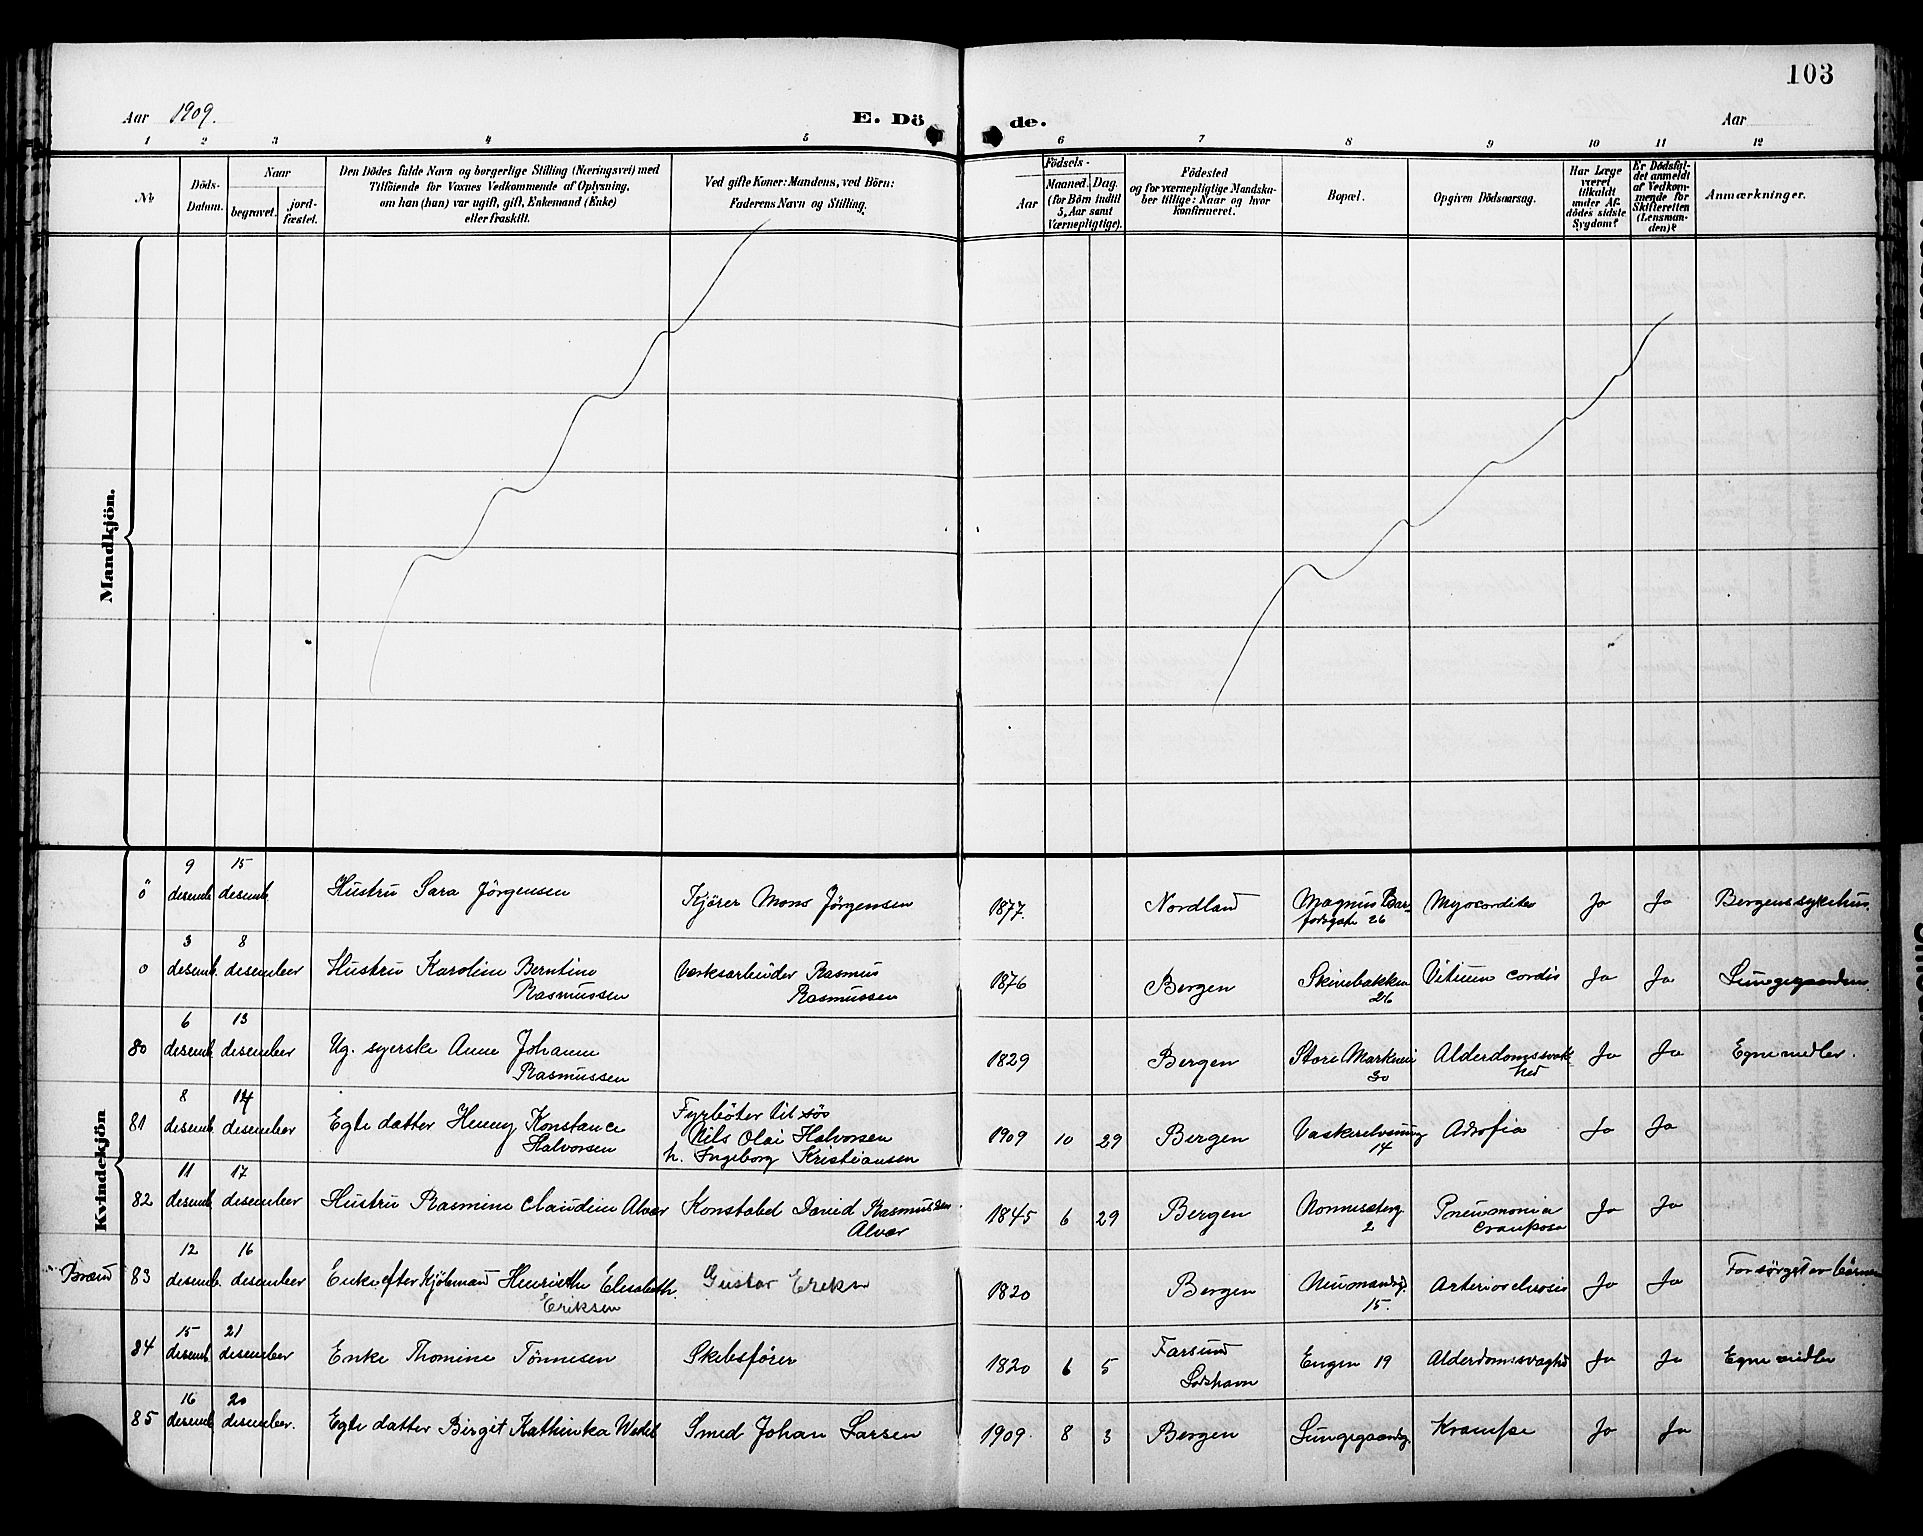 103
Aar 1909.
E. Dö de.
Aar
1 2 3 4 5 6 7 8 9 10 11 12
No
Döds-
Datum.
Naar
begravet.
jord-
fæstet.
Den Dödes fulde Navn og borgerlige Stilling (Næringsvei) med
Tilföiende for Voxnes Vedkommende af Oplysning,
om han (hun) var ugift, gift, Enkemand (Enke)
eller fraskilt.
Ved gifte Koner: Mandens, ved Börn:
Faderens Navn og Stilling.
Födsels-
Aar
Maaned. Dag.
(for Börn indtil
5 Aar samt
Værnepligtige).
Födested
og for værnepligtige Mandska-
ber tillige: Naar og hvor
konfirmeret.
Bopæl.
Opgiven Dödsaarsag.
Har Læge
været
tilkaldt
under Af-
dödes sidste
Sygdom?
Er Dödsfal-
det anmeldt
af Vedkom-
mende for
Skifteretten
(Lensman-
den)?
Anmærkninger.
Mandkjön.
Kvindekjön
0 9 desemb. 15 desemb. Hustru Sara Jörgensen Kjörer Mons Jörgensen 1877. Nordland Magnus Bar-
fodsgate 26 Myocorditis Jo Jo Bergens sykehus.
0 3 desemb. 8 desember Hustru Karoline Berntine
Rasmussen Værksarbeider Rasmus
Rasmussen 1876 Bergen Skivebakken
26 Vitium cordis Jo Jo Lungegaardens
80 6 desemb. 13 desember Ug. syerske Anne Johanne
Rasmussen 1829 Bergen Store Markevei
30 Alderdomssvak
hed Jo Jo Egne midler.
81 8 desemb. 14 desember Egte datter Henny Konstance
Halvorsen Fyrböter til søs
Nils Olai Halvorsen
h. Ingeborg Kristiansen 1909 10 29 Bergen Vaskerelvsmug
14 Atrofia Jo Jo
82 11 desemb. 17 desember Hustru Rasmine Claudine Alvær Konstabel David Rasmussen
Alvær 1845 6 29 Bergen Nonneseterg.
2 Pneumonia
crouposa Jo Jo
83 12 desemb. 16 desember Enke efter Kjöbmand Henriette Elisabeth
Eriksen Gustav Eriksn 1820 Bergen Neumandsg.
15. Arteriosclerosis Jo Jo Forsörget av börnene
84 15 desemb. 21 desember Enke Thomine Tönnesen Skibsfører 1820 6 5 Farsund
Loshavn Engen 19 Alderdomsvaghd Jo Jo Egne midler
85 16 desemb. 20 desember. Egte datter Birgit Kathinka Wedel Smed Johan Larsen 1909. 8 3 Bergen Lungegaardsg. Krampe Jo Jo